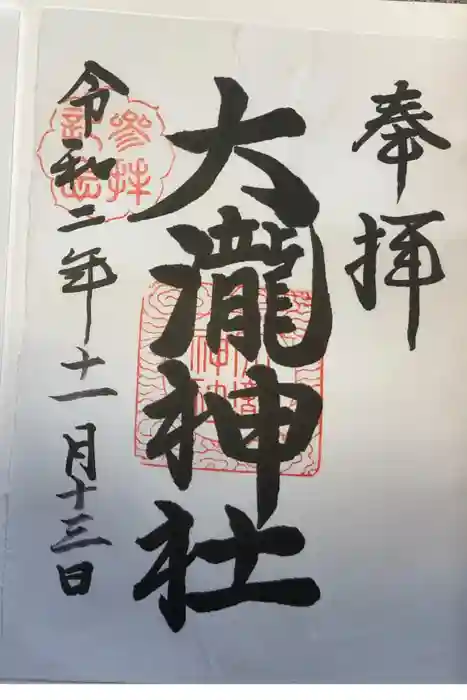 奉拝
大瀧神社
令和二年十一月十三日
参拝
記念